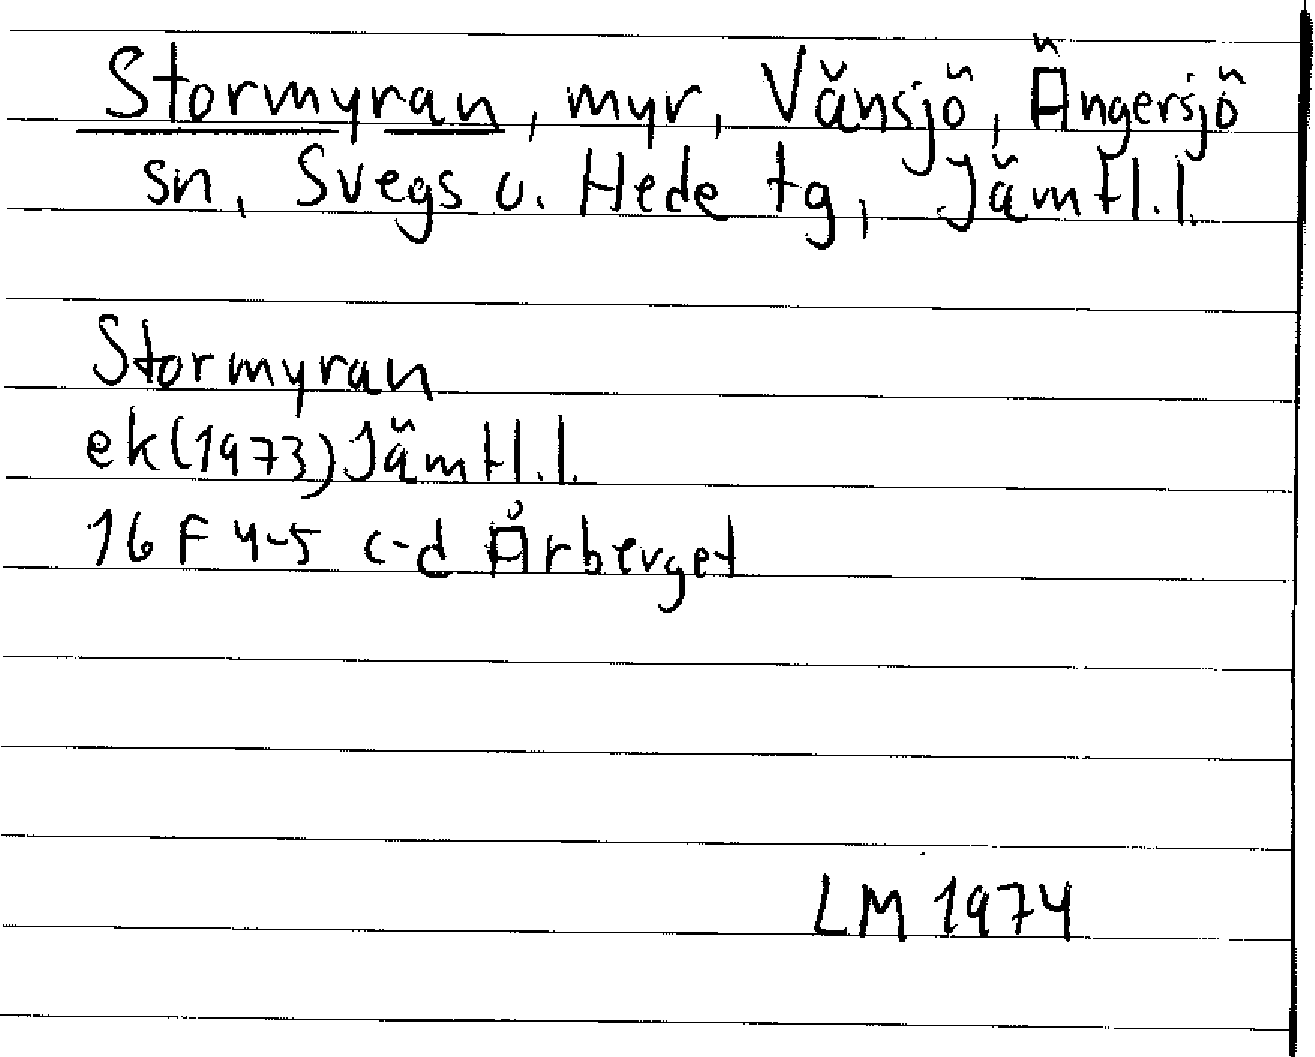 Stormyran, myr, Vänsjö, Ängersjö
sn, Svegs o. Hede tg, Jämtl.l.
Stormyran
ek(1973) Jämtl.l.
16 F 4-5 c-d Årberget
LM 1974